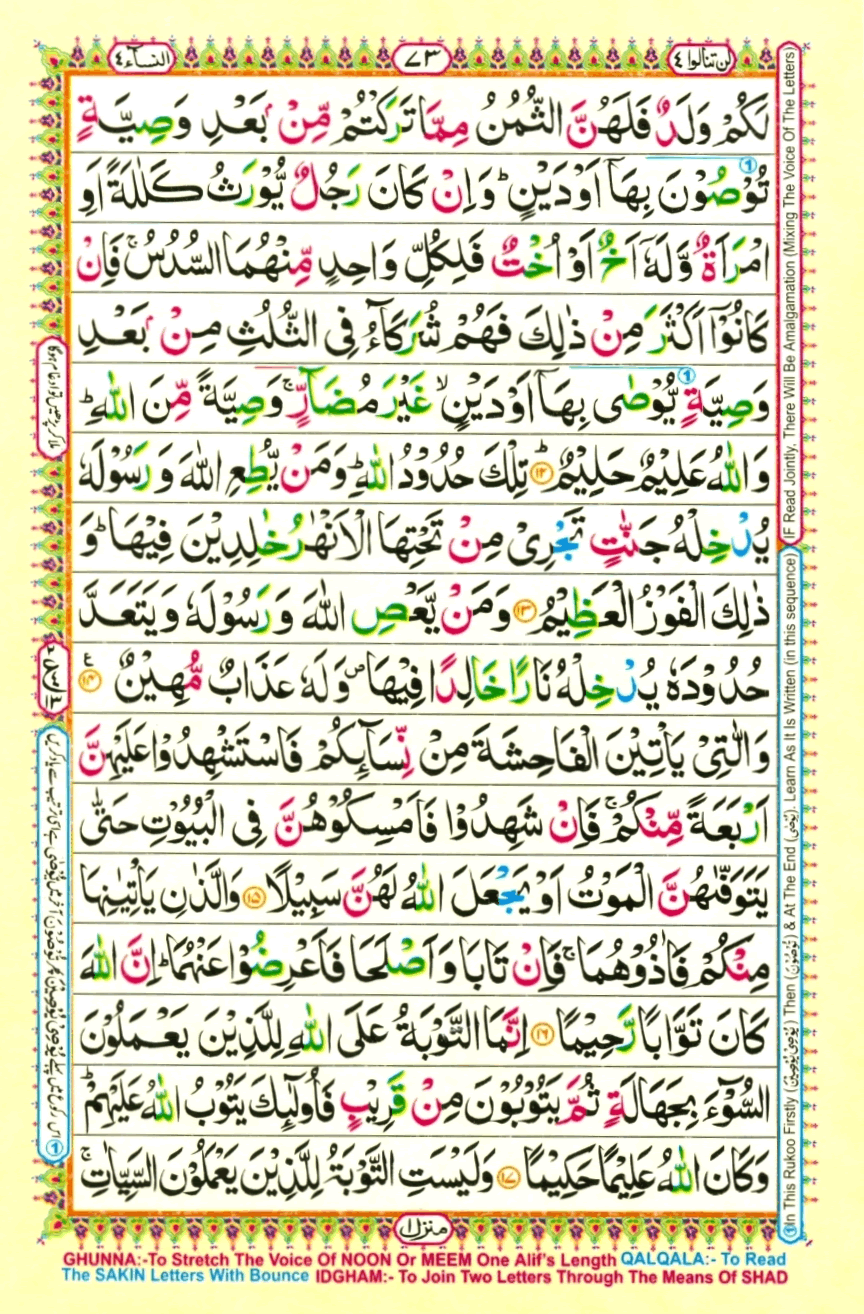 لن تنالوا ٤
٧٣
النسآء ٤
لَكُمْ وَلَدٌ فَلَهُنَّ الثُّمُنُ مِمَّا تَرَكْتُمْ مِّنْۢ بَعْدِ وَصِيَّةٍ
تُوْصُوْنَ بِهَاۤ اَوْ دَيْنٍ ؕ وَاِنْ كَانَ رَجُلٌ يُّوْرَثُ كَلٰلَةً اَوِ
امْرَاَةٌ وَّلَهٗۤ اَخٌ اَوْ اُخْتٌ فَلِكُلِّ وَاحِدٍ مِّنْهُمَا السُّدُسُ ۚ فَاِنْ
كَانُوْۤا اَكْثَرَ مِنْ ذٰلِكَ فَهُمْ شُرَكَآءُ فِى الثُّلُثِ مِنْۢ بَعْدِ
وَصِيَّةٍ يُّوْصٰى بِهَاۤ اَوْ دَيْنٍ ۙ غَيْرَ مُضَآرٍّ ۚ وَصِيَّةً مِّنَ اللّٰهِ ؕ
وَاللّٰهُ عَلِيْمٌ حَلِيْمٌ ؕ ١٢ تِلْكَ حُدُوْدُ اللّٰهِ ؕ وَمَنْ يُّطِعِ اللّٰهَ وَرَسُوْلَهٗ
يُدْخِلْهُ جَنّٰتٍ تَجْرِىْ مِنْ تَحْتِهَا الْاَنْهٰرُ خٰلِدِيْنَ فِيْهَا ؕ وَ
ذٰلِكَ الْفَوْزُ الْعَظِيْمُ ١٣ وَمَنْ يَّعْصِ اللّٰهَ وَرَسُوْلَهٗ وَيَتَعَدَّ
حُدُوْدَهٗ يُدْخِلْهُ نَارًا خَالِدًا فِيْهَا ۖ وَلَهٗ عَذَابٌ مُّهِيْنٌ ١٤ ع
وَالّٰتِىْ يَاْتِيْنَ الْفَاحِشَةَ مِنْ نِّسَآئِكُمْ فَاسْتَشْهِدُوْا عَلَيْهِنَّ
اَرْبَعَةً مِّنْكُمْ ۚ فَاِنْ شَهِدُوْا فَاَمْسِكُوْهُنَّ فِى الْبُيُوْتِ حَتّٰى
يَتَوَفّٰهُنَّ الْمَوْتُ اَوْ يَجْعَلَ اللّٰهُ لَهُنَّ سَبِيْلًا ١٥ وَالَّذٰنِ يَاْتِيٰنِهَا
مِنْكُمْ فَاٰذُوْهُمَا ۚ فَاِنْ تَابَا وَاَصْلَحَا فَاَعْرِضُوْا عَنْهُمَا ؕ اِنَّ اللّٰهَ
كَانَ تَوَّابًا رَّحِيْمًا ١٦ اِنَّمَا التَّوْبَةُ عَلَى اللّٰهِ لِلَّذِيْنَ يَعْمَلُوْنَ
السُّوْٓءَ بِجَهَالَةٍ ثُمَّ يَتُوْبُوْنَ مِنْ قَرِيْبٍ فَاُولٰٓئِكَ يَتُوْبُ اللّٰهُ عَلَيْهِمْ ؕ
وَكَانَ اللّٰهُ عَلِيْمًا حَكِيْمًا ١٧ وَلَيْسَتِ التَّوْبَةُ لِلَّذِيْنَ يَعْمَلُوْنَ السَّيِّاٰتِ ۚ
منزل ١
IF Read Jointly, There Will Be Amalgamation (Mixing The Voice Of The Letters)
①In This Rukoo Firstly (يُوْصِىْ يُوْصِيْنَ) Then (تُوْصُوْنَ) & At The End (يُوْصٰى). Learn As It Is Written (in this sequence)
GHUNNA:-To Stretch The Voice Of NOON Or MEEM One Alif's Length QALQALA:- To Read
The SAKIN Letters With Bounce IDGHAM:- To Join Two Letters Through The Means Of SHAD